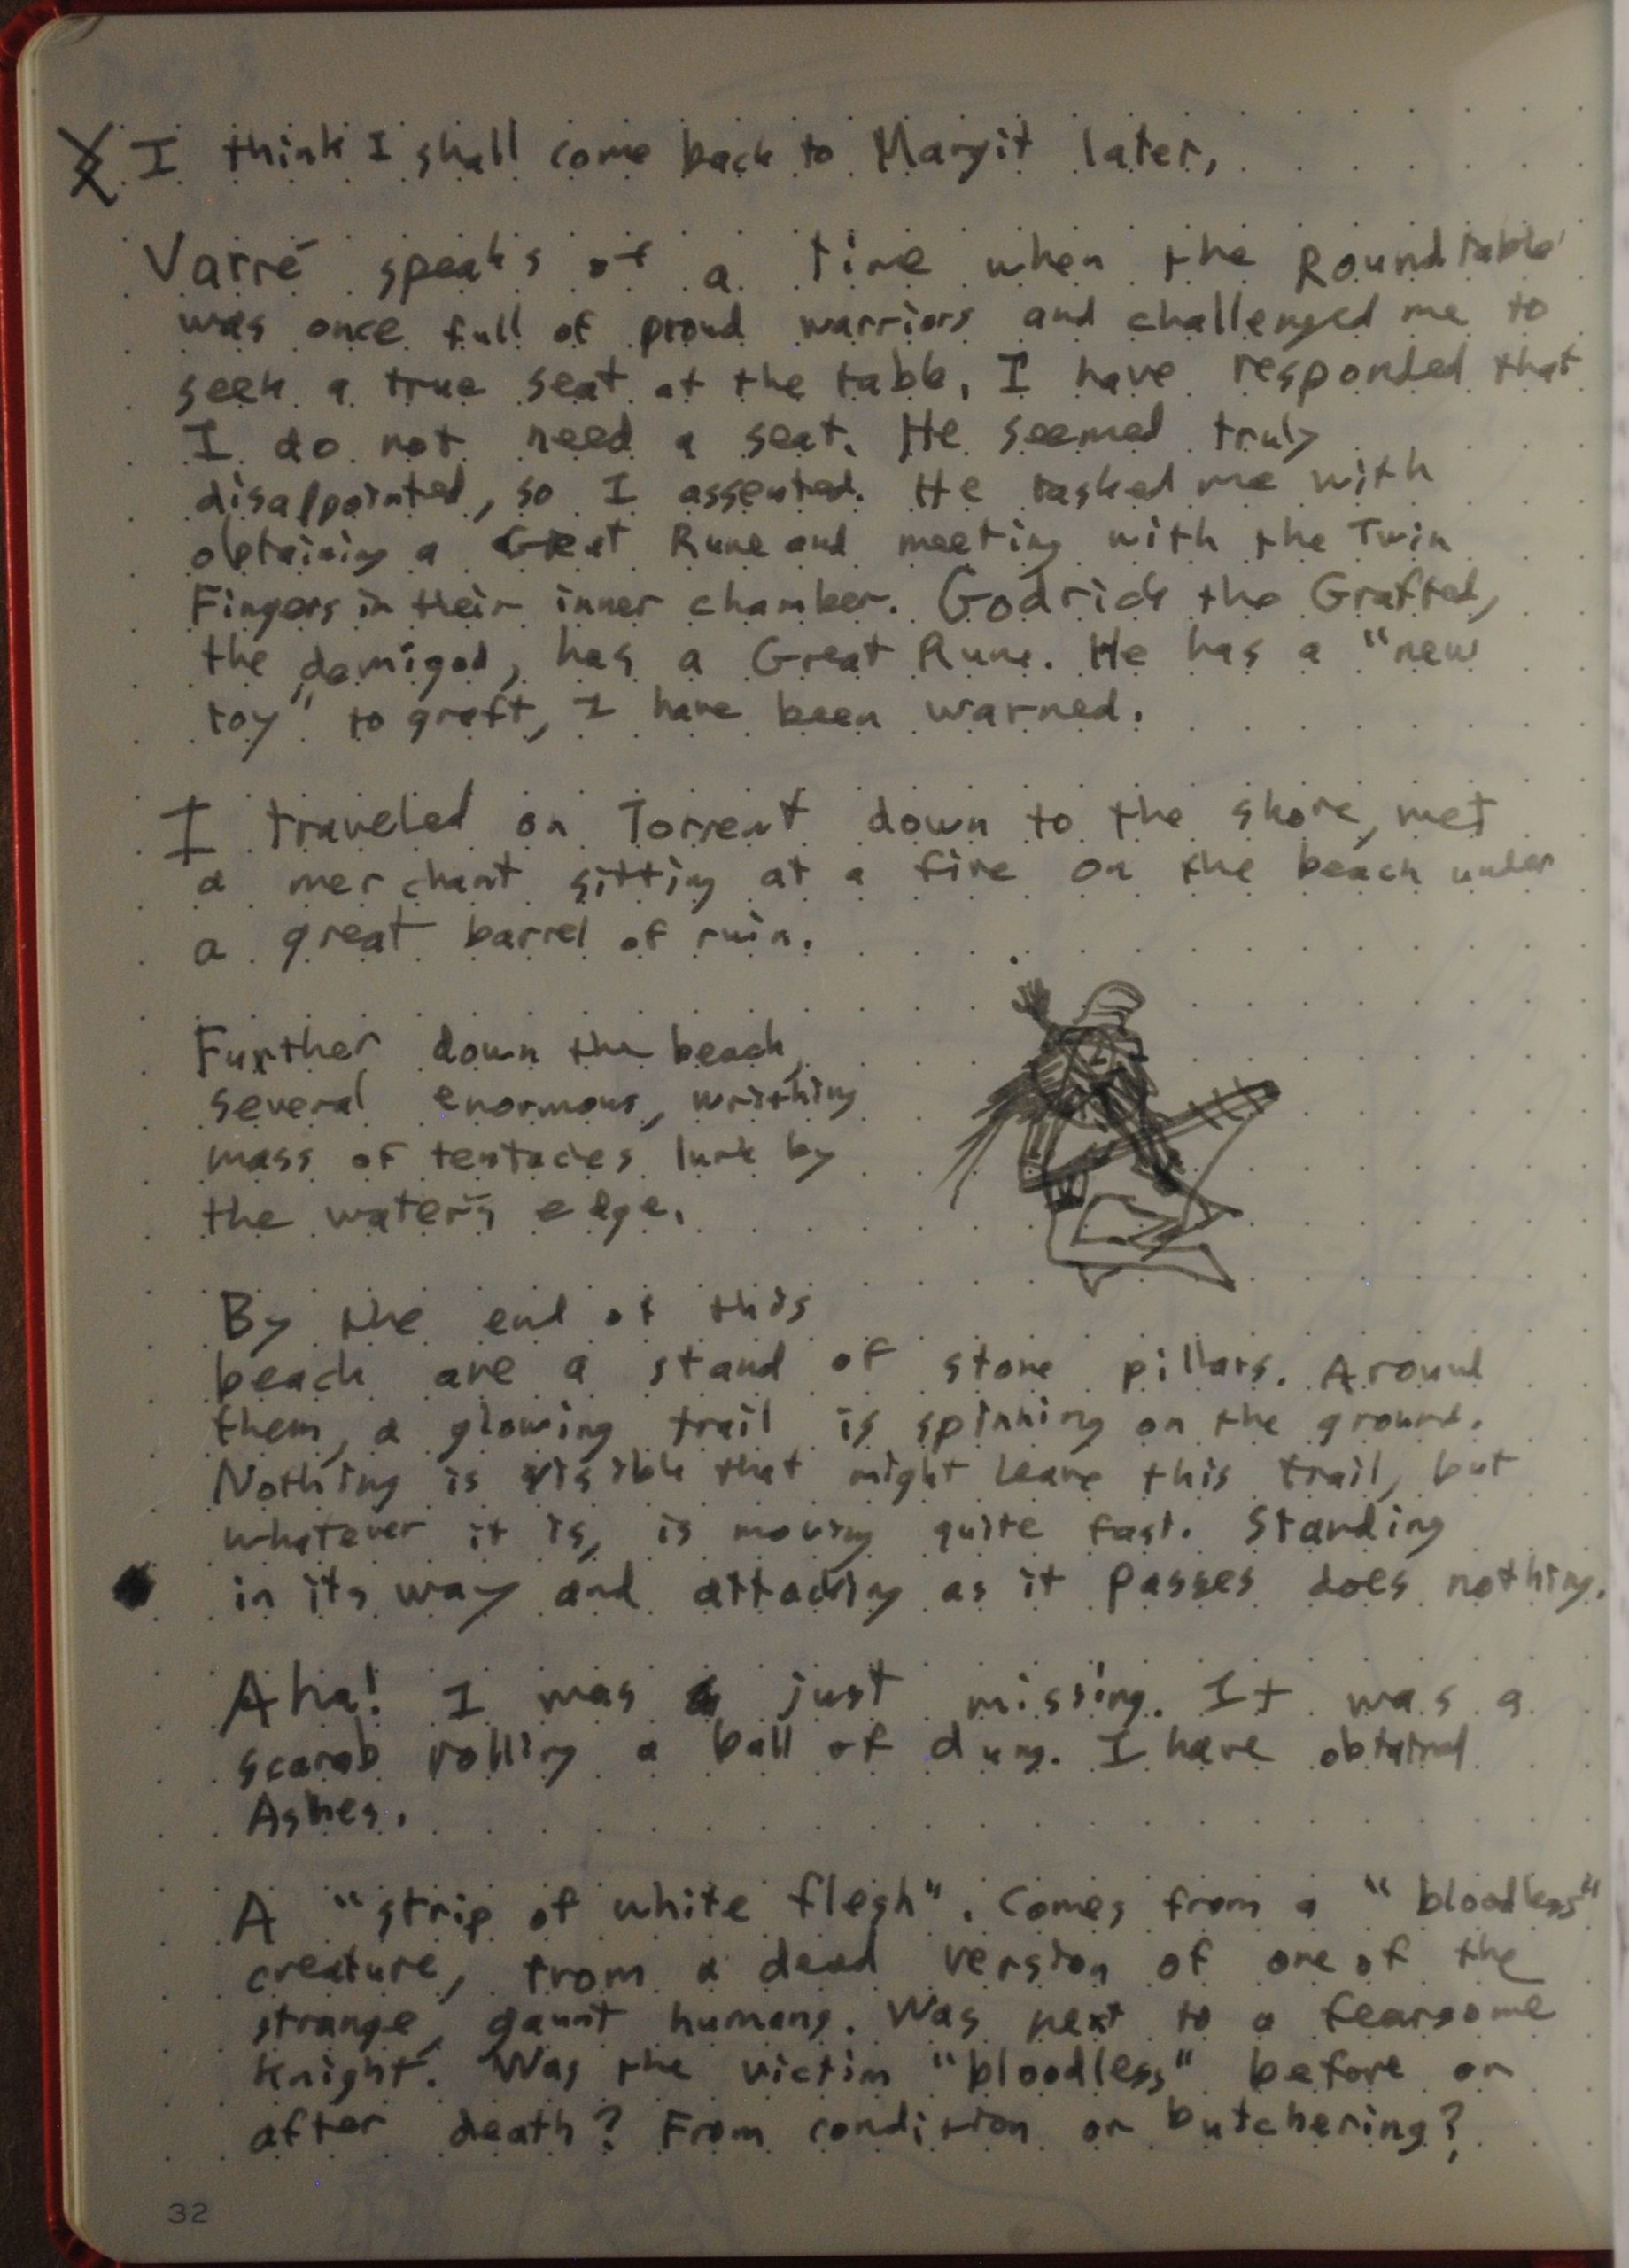 I think I shall come back to Margit later,
Varré speaks of a time when the Roundtable
was once full of proud warriors and challenged me to
seek a true seat at the table. I have responded that
I do not need a seat. He seemed truly
disappointed, so I assented. He tasked me with
obtaining a Great Rune and meeting with the Twin
Fingers in their inner chamber. Godrick the Grafted,
the demigod, has a Great Rune. He has a "new
toy" to graft, I have been warned.
I traveled on Torrent down to the shore, met
a merchant sitting at a fire on the beach under
a great barrel of ruin.
Further down the beach,
several enormous, writhing
mass of tentacles lurk by
the water's edge.
By the end of this
beach are a stand of stone pillars. Around
them, a glowing trail is spinning on the ground.
Nothing is visible that might leave this trail, but
whatever it is, is moving quite fast. Standing
in its way and attacking as it passes does nothing.
Aha! I was just missing. It was a
scarab rolling a ball of dung. I have obtained
Ashes.
A "strip of white flesh". Comes from a "bloodless"
creature, from a dead version of one of the
strange, gaunt humans. Was next to a fearsome
knight. Was the victim "bloodless" before or
after death? From condition or butchering?
32